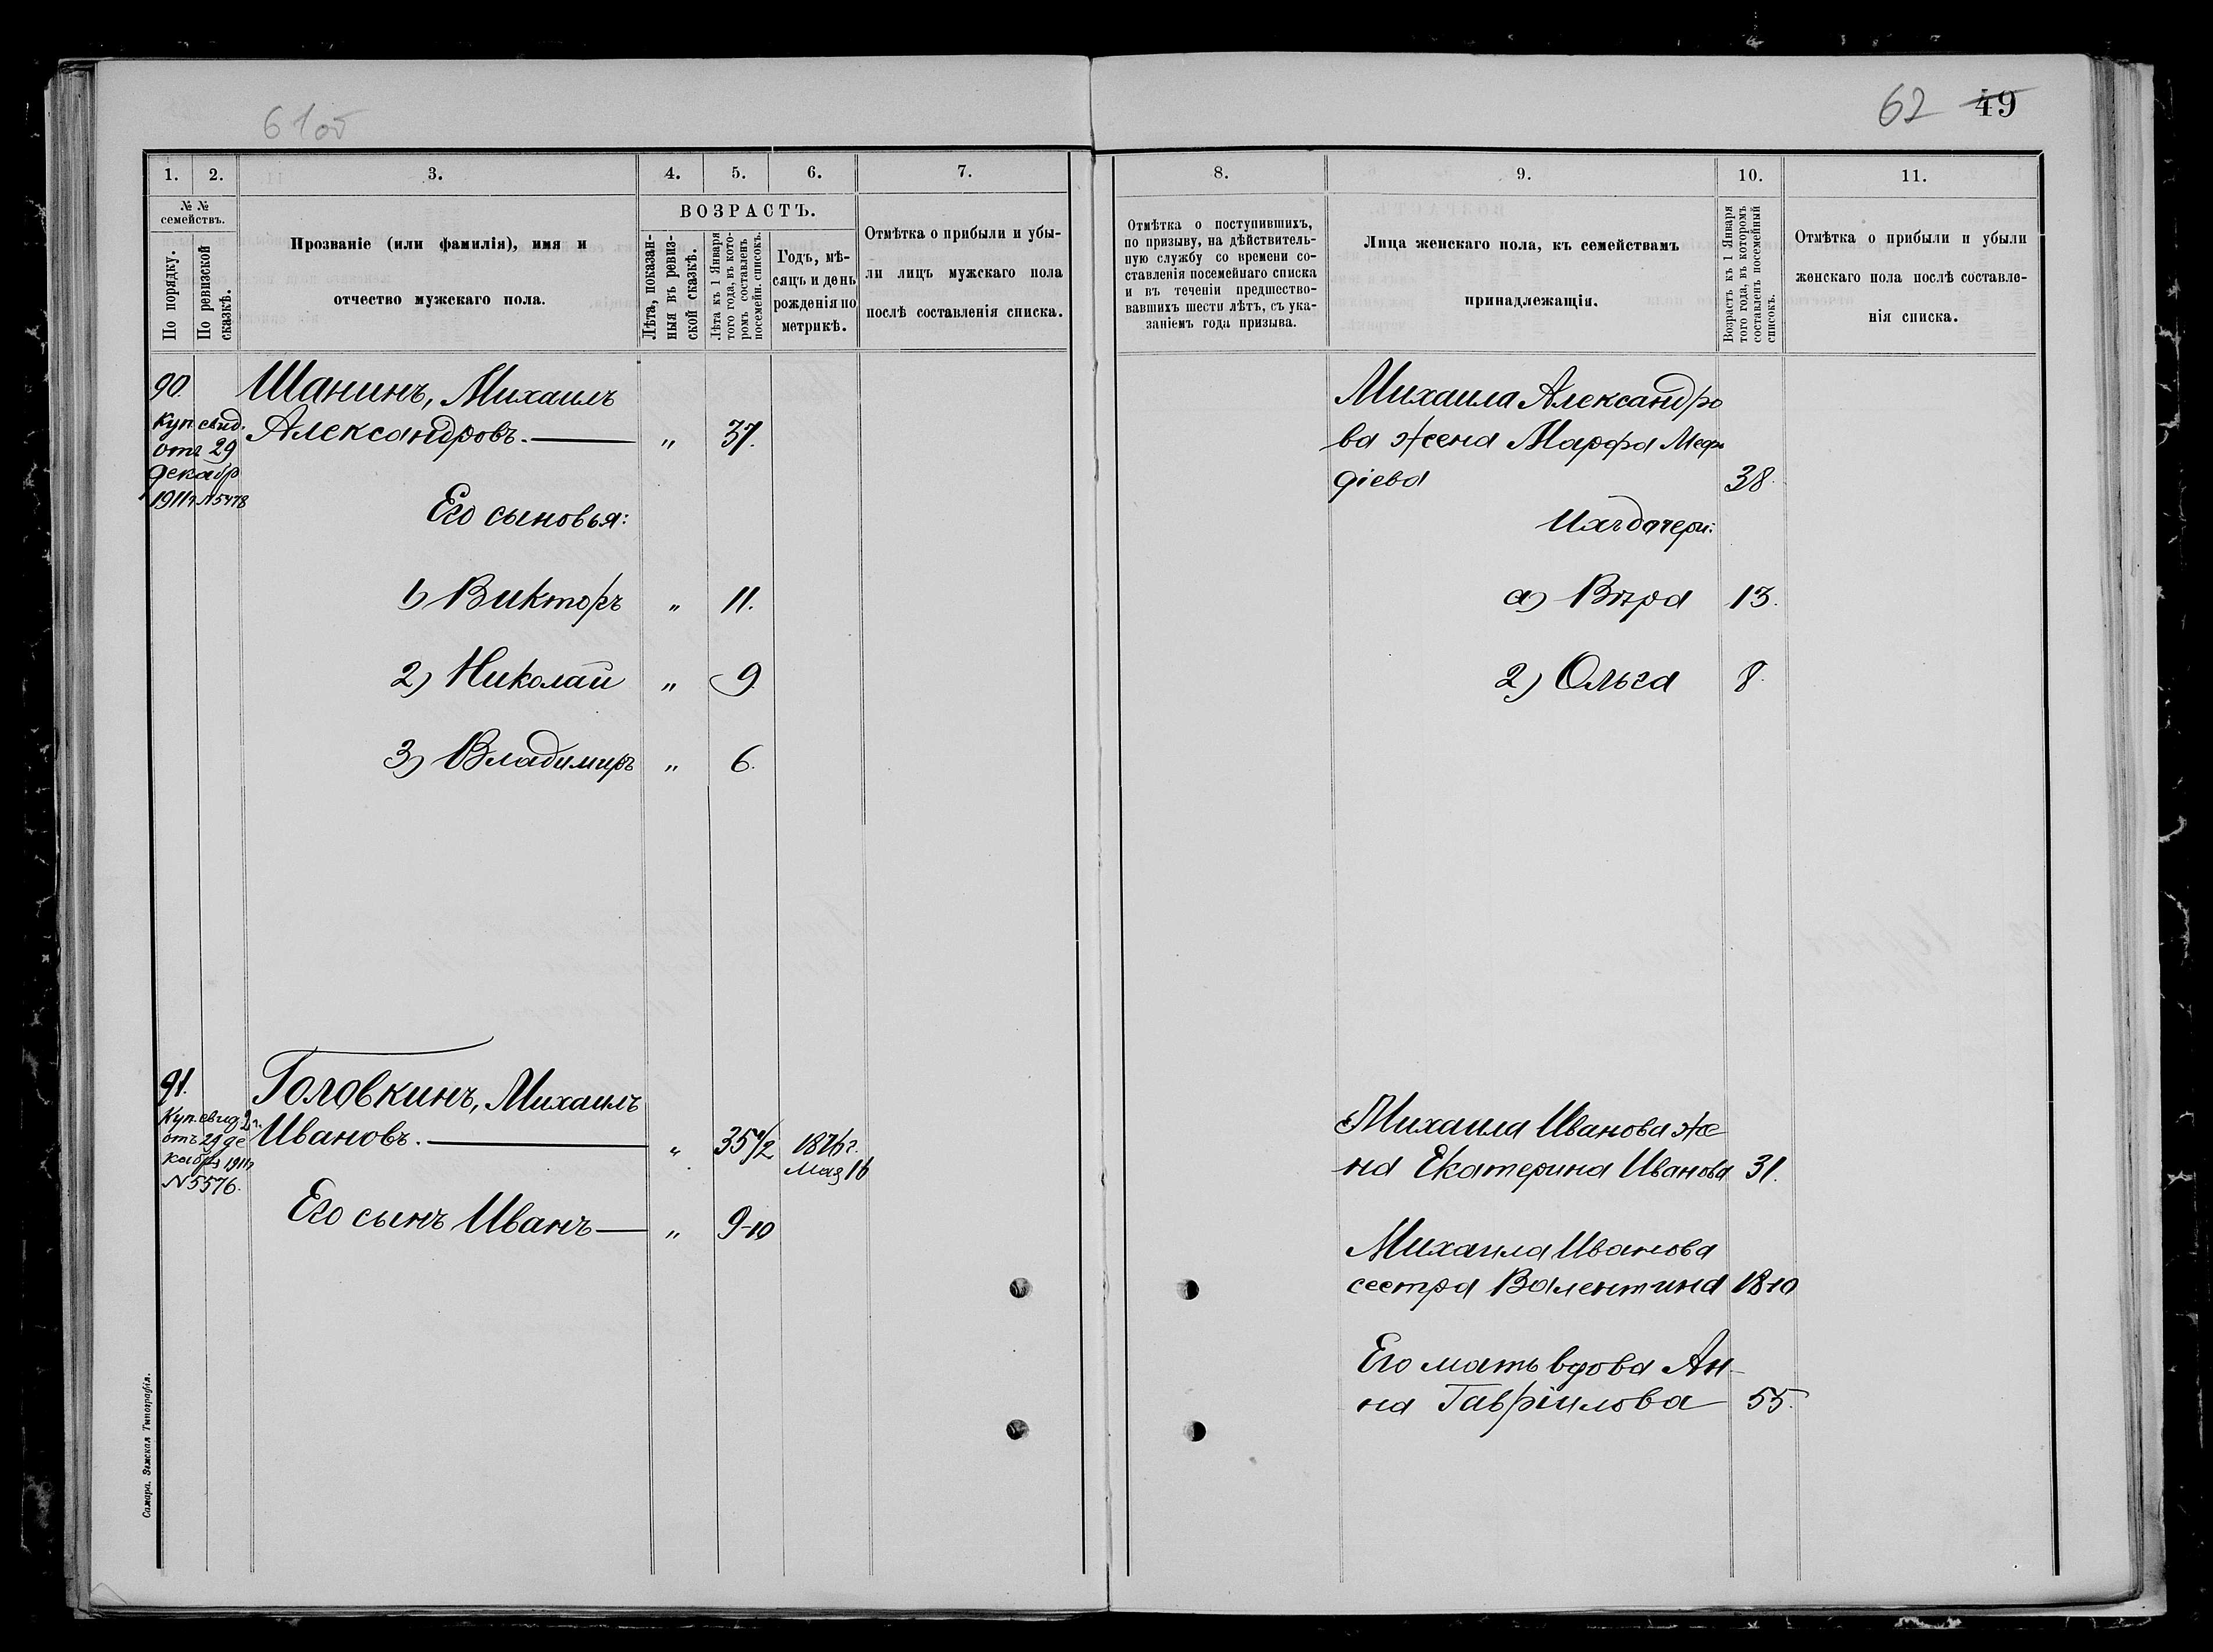 61об
62 49
1. 2. 3. 4. 5. 6. 7.
№ №
семействъ.
По порядку.
По ревизской
сказкѣ.
Прозваніе (или фамилія), имя и
отчество мужскаго пола.
ВОЗРАСТЪ.
Лѣта, показан-
ныя въ ревиз-
ской сказкѣ.
Лѣта къ 1 Января
того года, въ кото-
ромъ составленъ
посемейн. списокъ.
Годъ, мѣ-
сяцъ и день
рожденія по
метрикѣ.
Отмѣтка о прибыли и убы-
ли лицъ мужскаго пола
послѣ составленія списка.
90.
Куп. свид.
отъ 29
декабр
1911г. №5478
Шанинъ, Михаилъ
Александровъ. — „ 37.
Его сыновья:
1) Викторъ „ 11.
2) Николай „ 9.
3) Владимиръ „ 6.
91.
Куп. свид. 2г.
отъ 29 де
кабря 1911г
№5576.
Головкинъ, Михаилъ
Ивановъ. — „ 35 1/2 1876г.
Мая 16
Его сынъ Иванъ — „ 9-10
Самара. Земская Типографія.
8. 9. 10. 11.
Отмѣтка о поступившихъ,
по призыву, на дѣйствитель-
ную службу со времени со-
ставленія посемейнаго списка
и въ теченіи предшество-
вавшихъ шести лѣтъ, съ ука-
заніемъ года призыва.
Лица женскаго пола, къ семействамъ
принадлежащія.
Возрастъ къ 1 Января
того года, въ которомъ
составленъ посемейный
списокъ.
Отмѣтка о прибыли и убыли
женскаго пола послѣ составле-
нія списка.
Михаила Александро
ва жена Марфа Меѳо
діева 38.
Ихъ дочери:
а) Вѣра 13.
2) Ольга 8.
Михаила Иванова же
на Екатерина Иванова 31.
Михаила Иванова
сестра Валентина 18-10
Его мать вдова Ан-
на Гавріилова 55.